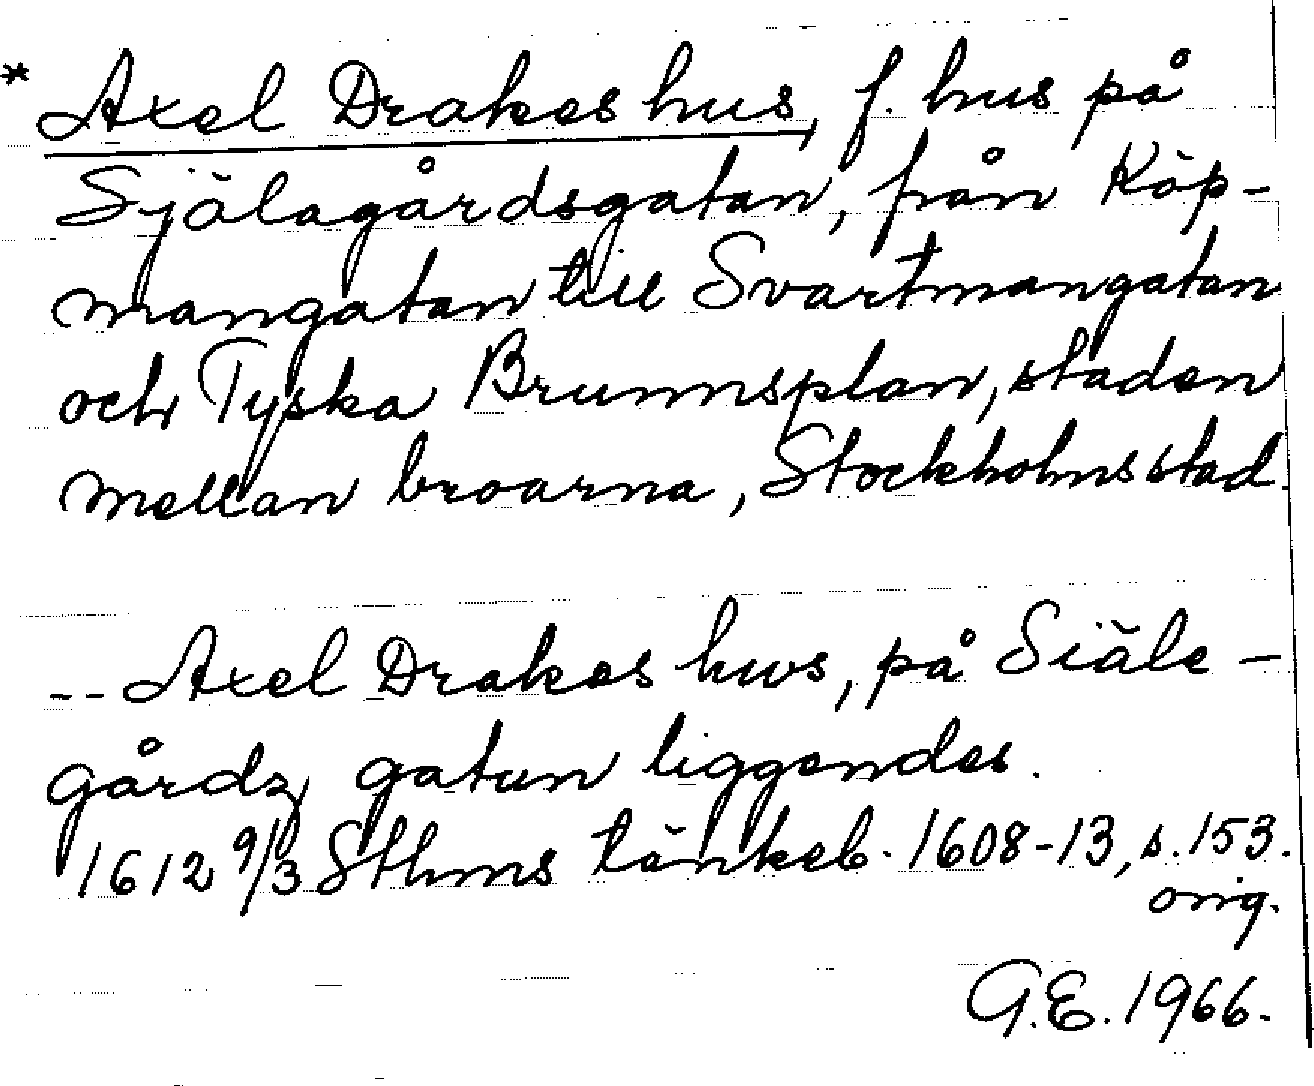 * Axel Drakes hus, f. hus på
Själagårdsgatan, från Köp-
mangatan till Svartmangatan
och Tyska Brunnsplan, staden
mellan broarna, Stockholms stad.
-- Axel Drakes hws, på Siäle-
gårdz gatun liggendes.
1612 9/3 Sthms tänkeb. 1608-13, s. 153.
orig.
G.E. 1966.